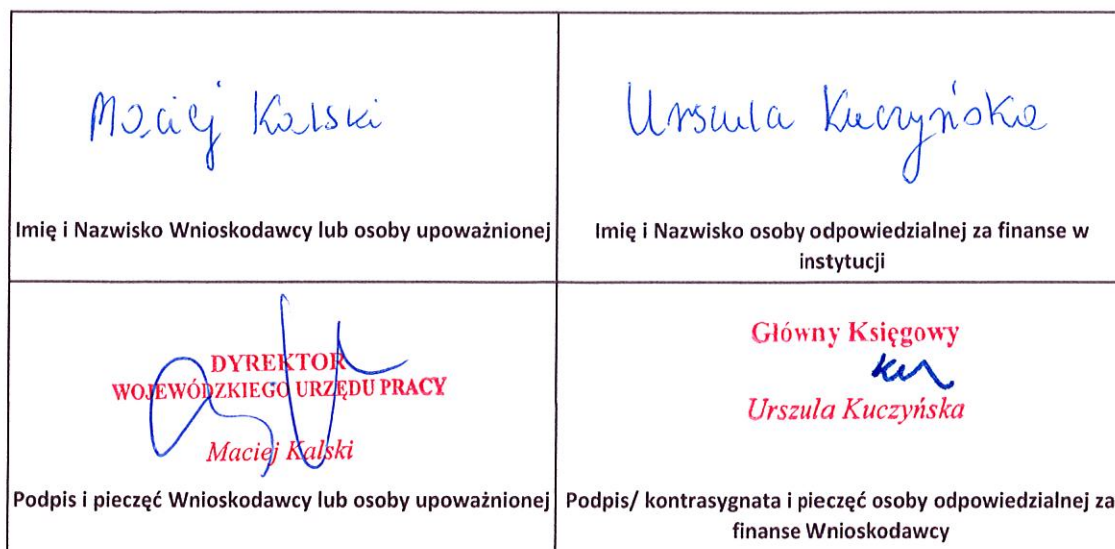 Maciej Kalski
Urszula Kuczyńska
Imię i Nazwisko Wnioskodawcy lub osoby upoważnionej
Imię i Nazwisko osoby odpowiedzialnej za finanse w
instytucji
DYREKTOR
WOJEWÓDZKIEGO URZĘDU PRACY
Maciej Kalski
Główny Księgowy
Urszula Kuczyńska
Podpis i pieczęć Wnioskodawcy lub osoby upoważnionej
Podpis/ kontrasygnata i pieczęć osoby odpowiedzialnej za
finanse Wnioskodawcy